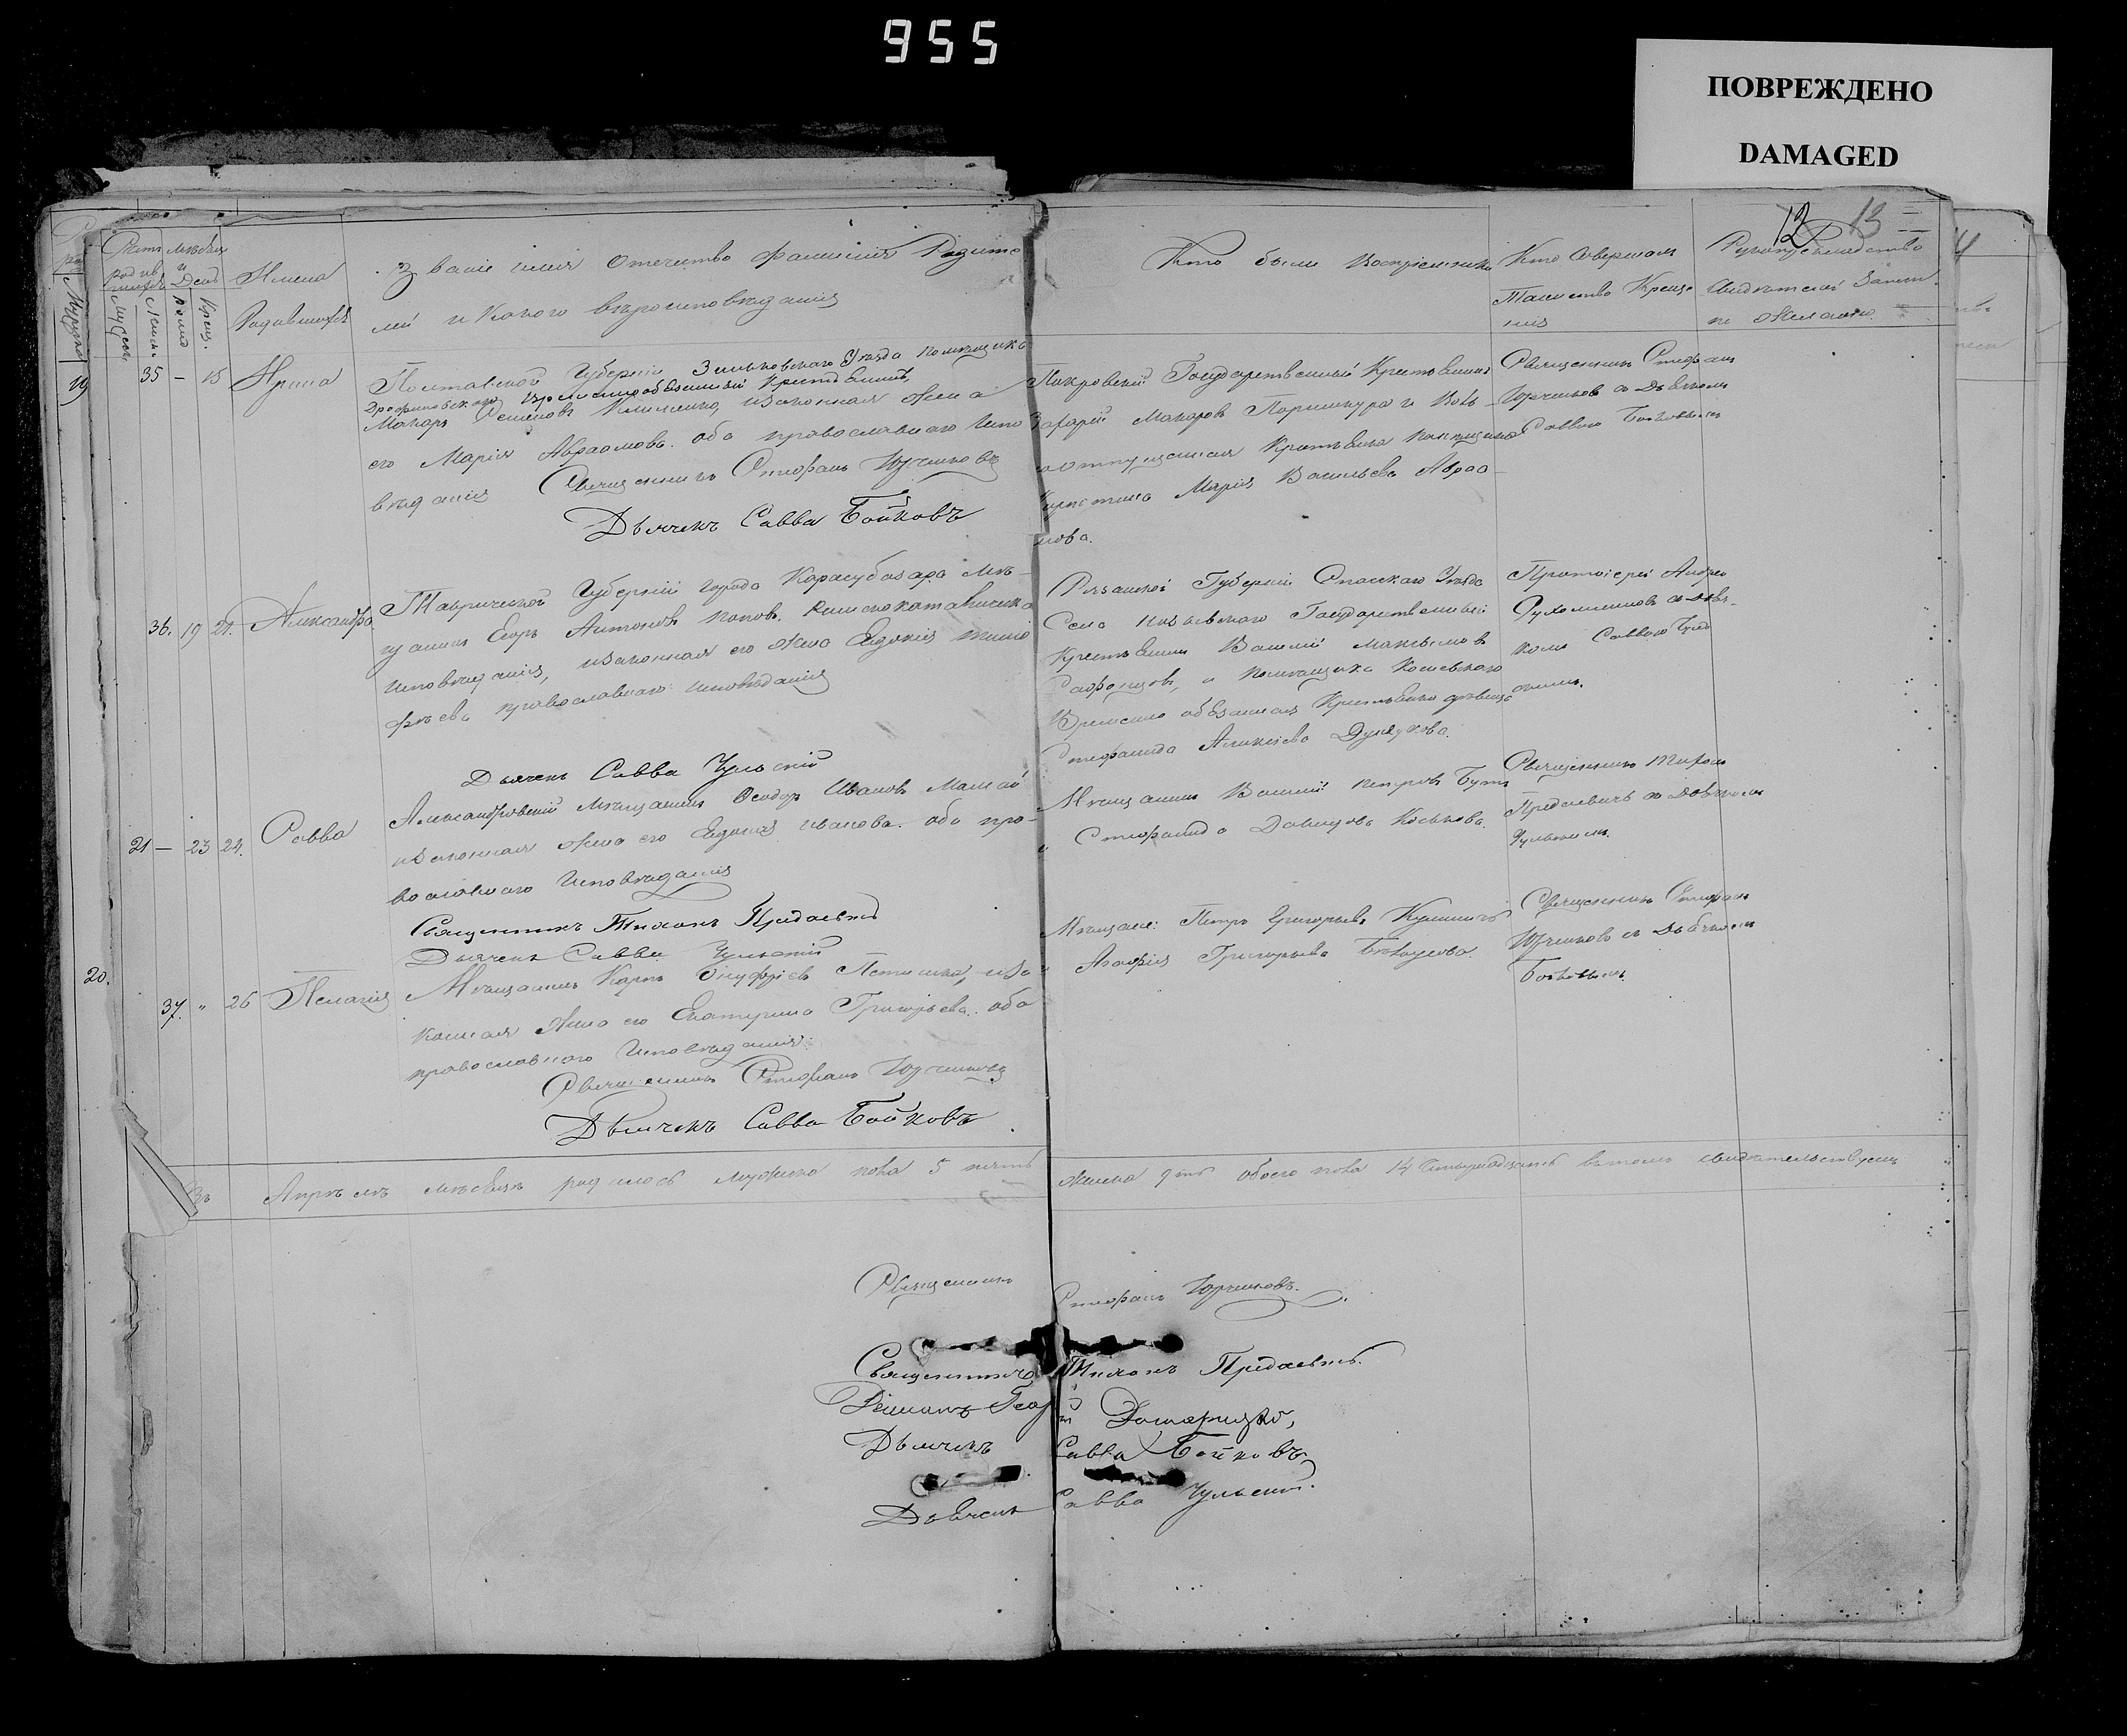 955
ПОВРЕЖДЕНО
DAMAGED
12 13
Счетъ родив
Мѣсяц и День
Имена
Родившихся
Званіе имя Отечество фамилія Родите
лей и Какого вѣроисповѣданія
Кто были Воспріемники
Кто Совершалъ
Таинство Креще
нія
Рукоприкладство
Свидѣтелей Записи
по Желанію
19
35 — 15 Ирина
Полтавской Губерніи Зиньковскаго Уѣзда помѣщика
временнообязанный Крестьянинъ
Макаръ Клименко, и Законная Жена
его Марія Авраамова. оба православнаго испо
вѣданія Священникъ Стефанъ Юрченковъ
Дьячекъ Савва Бойковъ
Покровскій Государственный Крестьянинъ
Захарій Макаровъ и
Крестьянка помѣщика
Марія Васильева Авраа
мова.
Священникъ Стефанъ
Юрченковъ съ Дьячкомъ
Саввою Бойковымъ
36. 19 21. Александра
Таврической Губерніи города Карасубазара мѣ
щанинъ Егоръ Антоновъ Поповъ. Римскокатолическа
исповѣданія, и Законная его Жена Евдокія Тимо
фѣева православнаго исповѣданія
Дьячекъ Савва Чульскій
Рязанской Губерніи Спасскаго Уѣзда
Села Государственный
Крестьянинъ Василій Максимовъ
Сафонцовъ, и помѣщика Кошевскаго
Временно обязанная Крестьянка дѣвица
Стефанида Алексѣева Дундукова.
Протоіерей Андрей
съ Дьяч
комъ Саввою Чуль
скимъ.
21 — 23 24. Савва
Александровскій мѣщанинъ Ѳеодоръ Ивановъ Мамай
и Законная Жена его Евдокія Иванова. оба пра
вославнаго Исповѣданія
Священникъ Тихонъ Предаевичъ
Дьячекъ Савва Чульскій
Мѣщанинъ Василій Петровъ
и Стефанида Давидова Коськова.
Священникъ Тихонъ
Предаевичъ съ Дьячкомъ
Чульскимъ.
20.
37. " 26 Пелагія
Мѣщанинъ Карпъ Онуфріевъ и За
конная Жена его Екатерина Григорьева. оба
православнаго Исповѣданія.
Священникъ Стефанъ Юрченковъ
Дьячекъ Савва Бойковъ
Мѣщане: Петръ Григорьевъ
и Агафія Григорьева
Священникъ Стефанъ
Юрченковъ съ Дьячкомъ
Бойковымъ.
Въ Апрѣлѣ мѣсяцѣ родилось мужеска пола 5 пять женска 9ть обоего пола 14 Четырнадцать въ томъ свидѣтельствуемъ
Священникъ Стефанъ Юрченковъ.
Священникъ Тихонъ Предаевичъ.
Дьячекъ Савва Бойковъ
Дьячекъ Савва Чульскій.